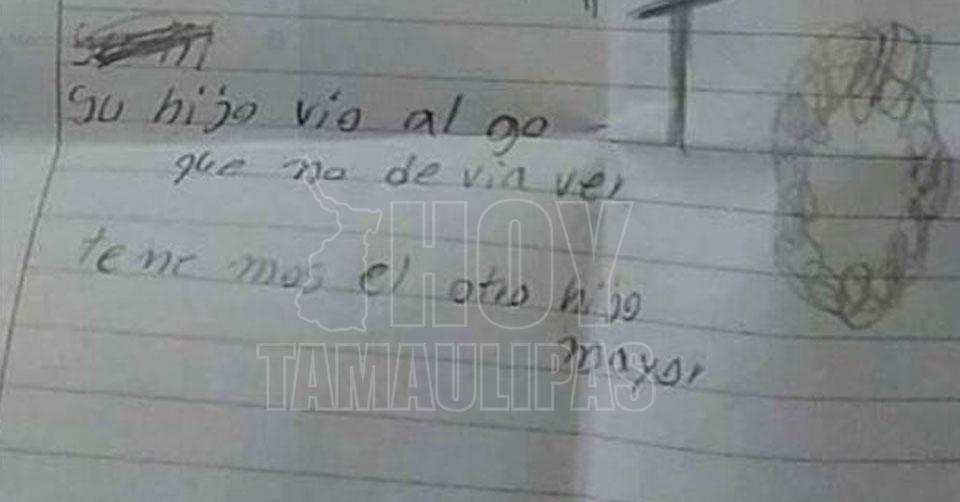 Su hijo vio al go
que no de via ver
tene mos el otro hijo
mayor
HOY
TAMAULIPAS